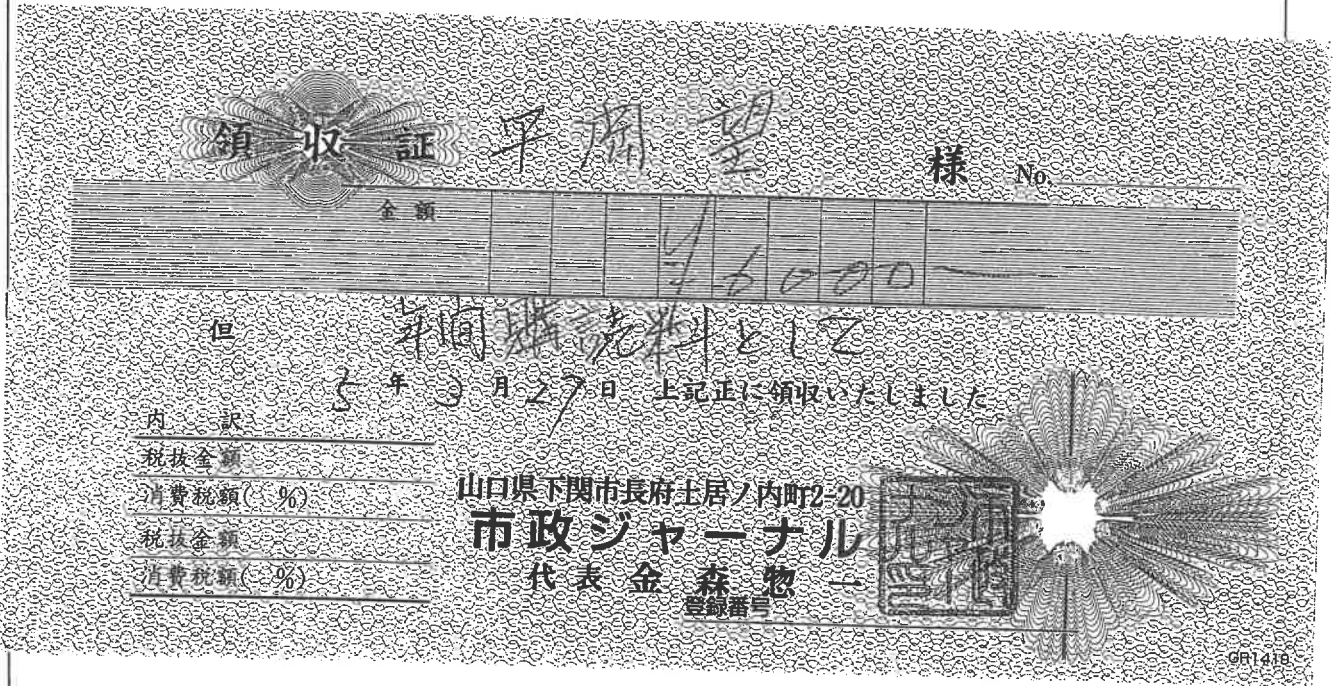 領収証 平岡望 様 No.
金額 ¥6000
但 年間購読料として
5年3月27日 上記正に領収いたしました
内訳
税抜金額
消費税額( %)
税抜金額
消費税額( %)
山口県下関市長府土居ノ内町2-20
市政ジャーナル
代表 金森惣一
登録番号
GR1410